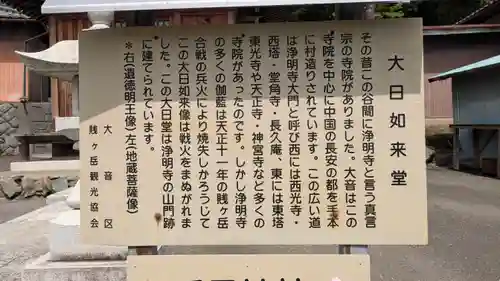 大日如来堂
その昔この谷間に浄明寺と言う真言
宗の寺院がありました。大音はこの
寺院を中心に中国の長安の都を手本
に村造りされています。この広い道
は浄明寺大門と呼び西には西光寺・
西塔・堂角寺・長久庵、東には東塔
東光寺や天正寺・神宮寺など多くの
寺院があったのです。しかし浄明寺
の多くの伽藍は天正十一年の賤ヶ岳
合戦の兵火により焼失しかろうじて
この大日如来像は戦火をまぬがれま
した。この大日堂は浄明寺の山門跡
に建てられています。
*右(道徳明王像)左(地蔵菩薩像)
大音区
賤ヶ岳観光協会